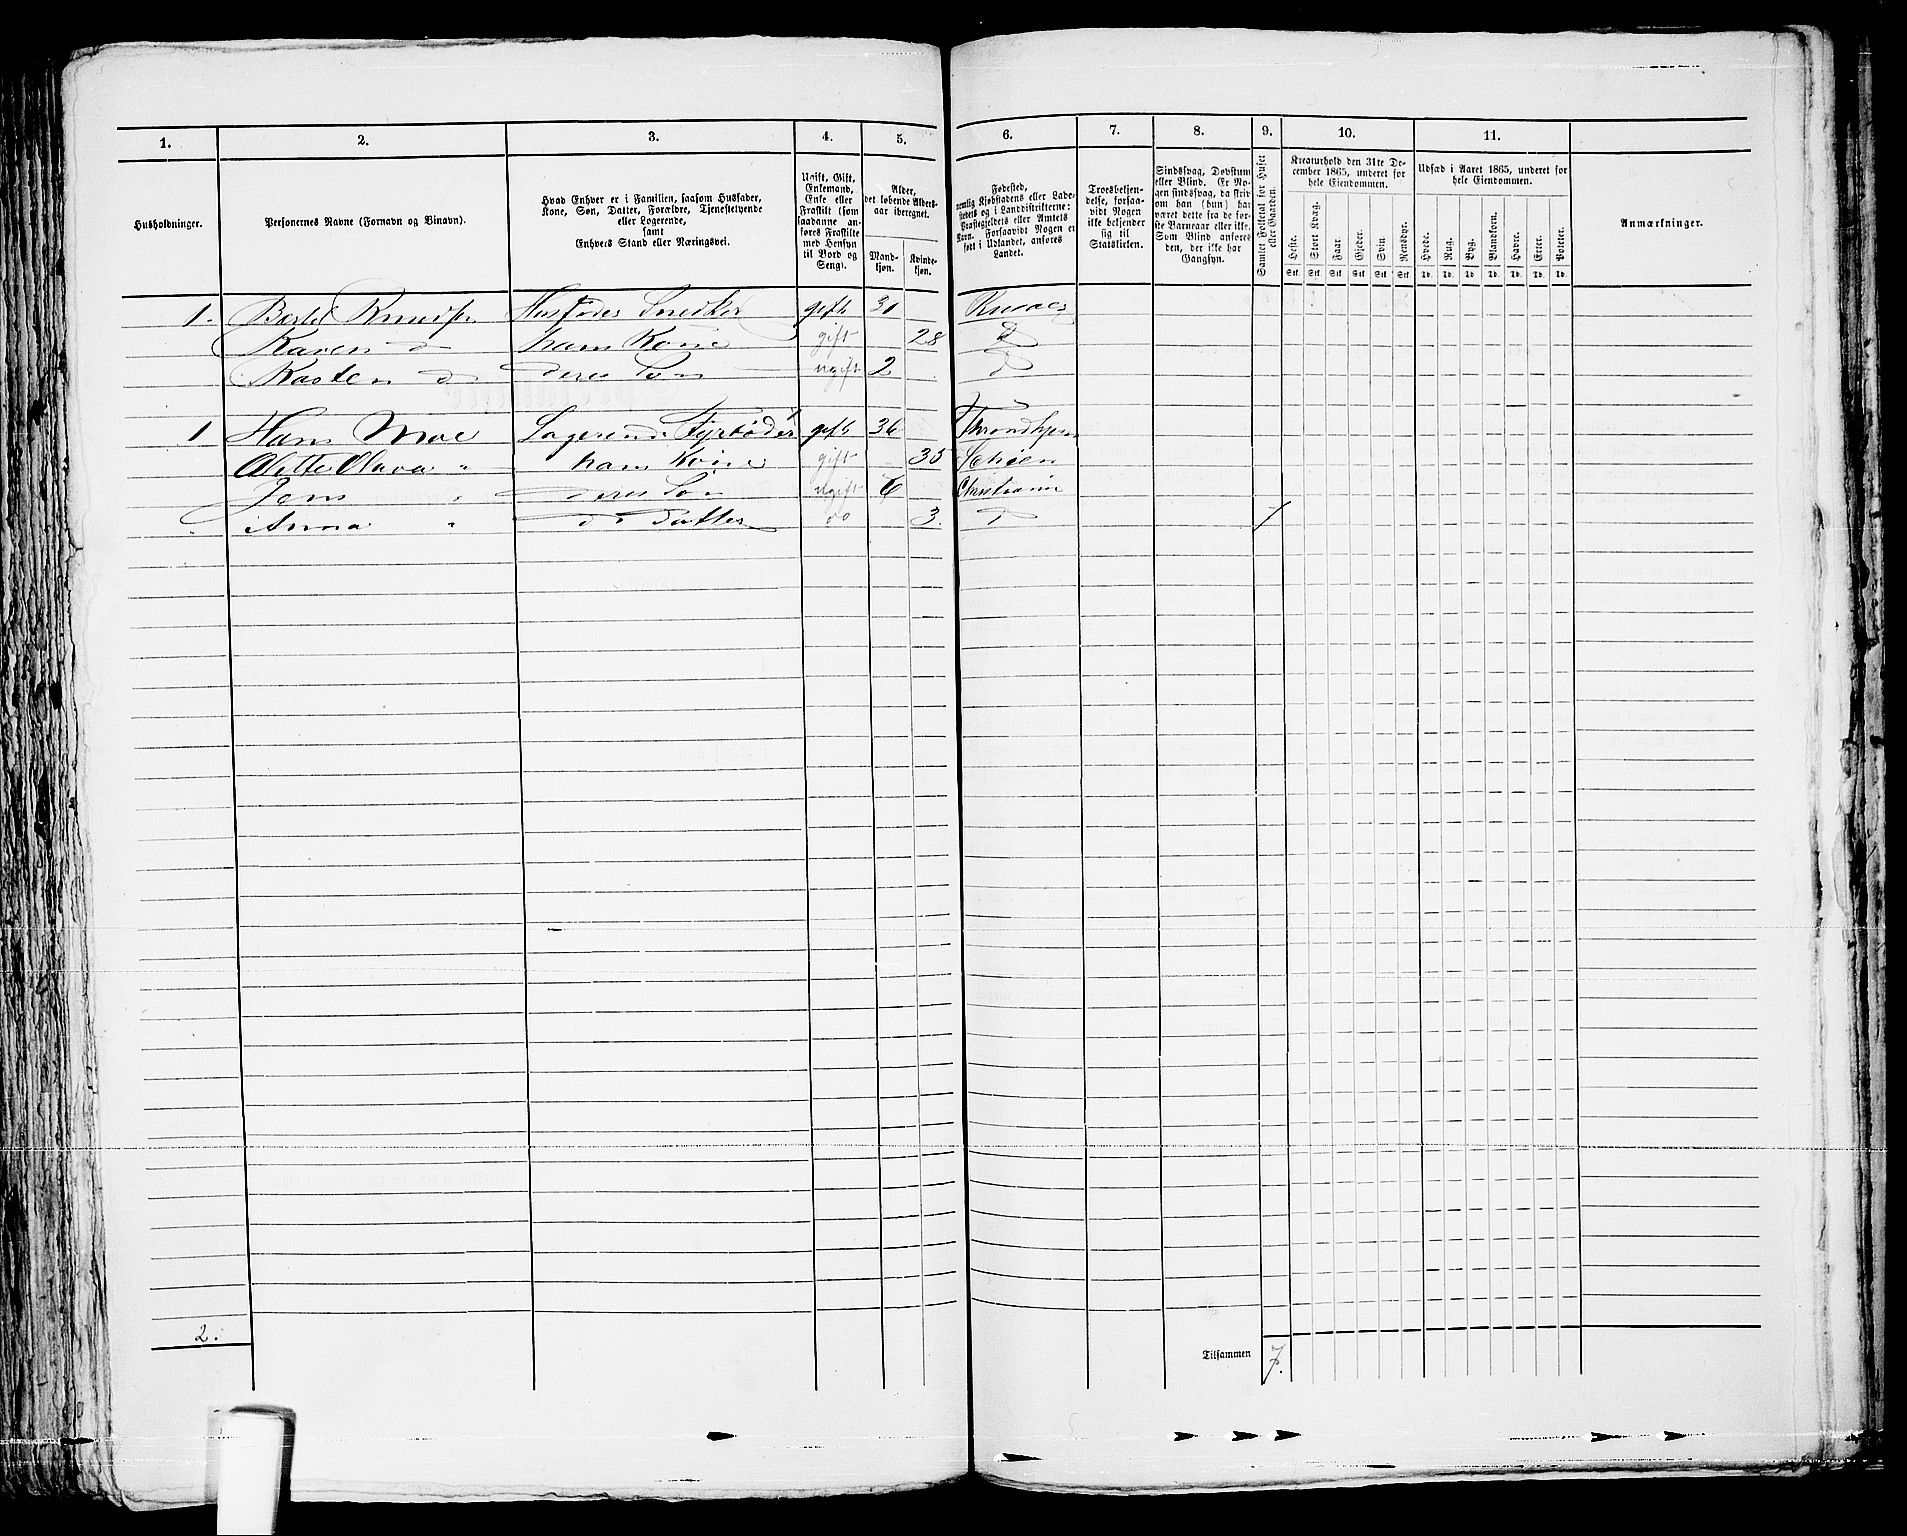 1. 2. 3. 4. 5. 6. 7. 8. 9. 10. 11.
Husholdninger.
Personernes Navne (Fornavn og Binavn).
Hvad Enhver er i Familien, saasom Husfader,
Kone, Søn, Datter, Forældre, Tjenestetyende
eller Logerende,
samt
Enhvers Stand eller Næringsvei.
Ugift, Gift,
Enkemand,
Enke eller
Fraskilt (som
saadanne an-
føres Fraskilte
med Hensyn
til Bord og
Seng).
Alder,
det løbende Alders-
aar iberegnet.
Mand-
kjøn.
Kvinde-
kjøn.
Fødested,
nemlig Kjøbstadens eller Lade-
stedets og i Landdistrikterne:
Præstegjeldets eller Amtets
Navn. Forsaavidt Nogen er
født i Udlandet, anføres
Landet.
Troesbekjen-
delse, forsaa-
vidt Nogen
ikke bekjender
sig til
Statskirken.
Sindssvag, Døvstum
eller Blind. Er No-
gen sindssvag, da skriv
om han (hun) har
været dette fra de før-
ste Barneaar eller ikke.
Som Blind anføres
den, der ikke har
Gangsyn.
Samlet Folketal for Huset
eller Gaarden.
Kreaturhold den 31te De-
cember 1865, underet for
hele Eiendommen.
Heste. Stort Kvæg. Faar. Gjeder. Svin Rensdyr.
Stk. Stk. Stk Stk Stk Stk
Udsæd i Aaret 1865, underet for
hele Eiendommen.
Hvede. Rug. Byg. Blandkorn. Havre. Erter. Poteter.
Td. Td Td Td. Td. Td. Td.
Anmærkninger.
1. Bertel Knudsen Husfader Snedker gift 31
Karen d hans Kone gift 28 d
Kasten d deres Søn ugift 2 d
1 Hans Moe Logerende Fyrbøder gift 36 Throndhjem
Olava " hans Kone gift 35 Schien
Jens " deres Søn ugift 6 Christiania
Anna " d d Datter do 3. d 7
2.
Tilsammen 7.